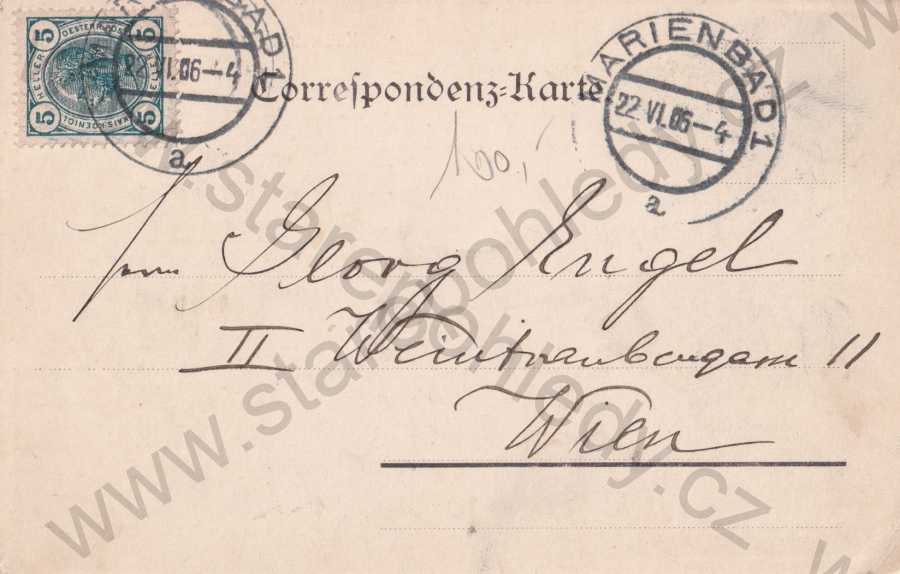 5 OESTERR. POST 5
HELLER HELLER
5 KAIS. KOENIGL. 5
22 VI.06-4
a
MARIENBAD 1
22 VI.06-4
a
Correspondenz-Karte
100,-
Herrn Georg Engel
II Weintraubengasse 11
Wien
www.starepohledy.cz
www.starepohledy.cz